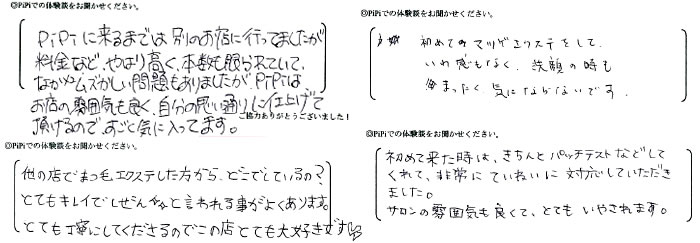 ◎PiPiでの体験談をお聞かせください。
PiPiに来るまでは別のお店に行ってましたが
料金など、やはり高く、本数も限られていて、
なかなかムズかしい問題もありましたが、PiPiは、
お店の雰囲気も良く、自分の思い通りに仕上げて
頂けるので、すごく気に入ってます。
ご協力ありがとうございました！
◎PiPiでの体験談をお聞かせください。
初めてのマツゲエクステをして、
いわ感もなく、洗顔の時も
まったく気にならないです。
◎PiPiでの体験談をお聞かせください。
他の店でまつ毛エクステした方から、どこでしているの？
とてもキレイでしぜんだねと言われる事がよくあります。
とても丁寧にしてくださるのでこの店とても大好きです♡
◎PiPiでの体験談をお聞かせください。
初めて来た時は、きちんとパッチテストなどして
くれて、非常にていねいに対応していただき
ました。
サロンの雰囲気も良くて、とてもいやされます。